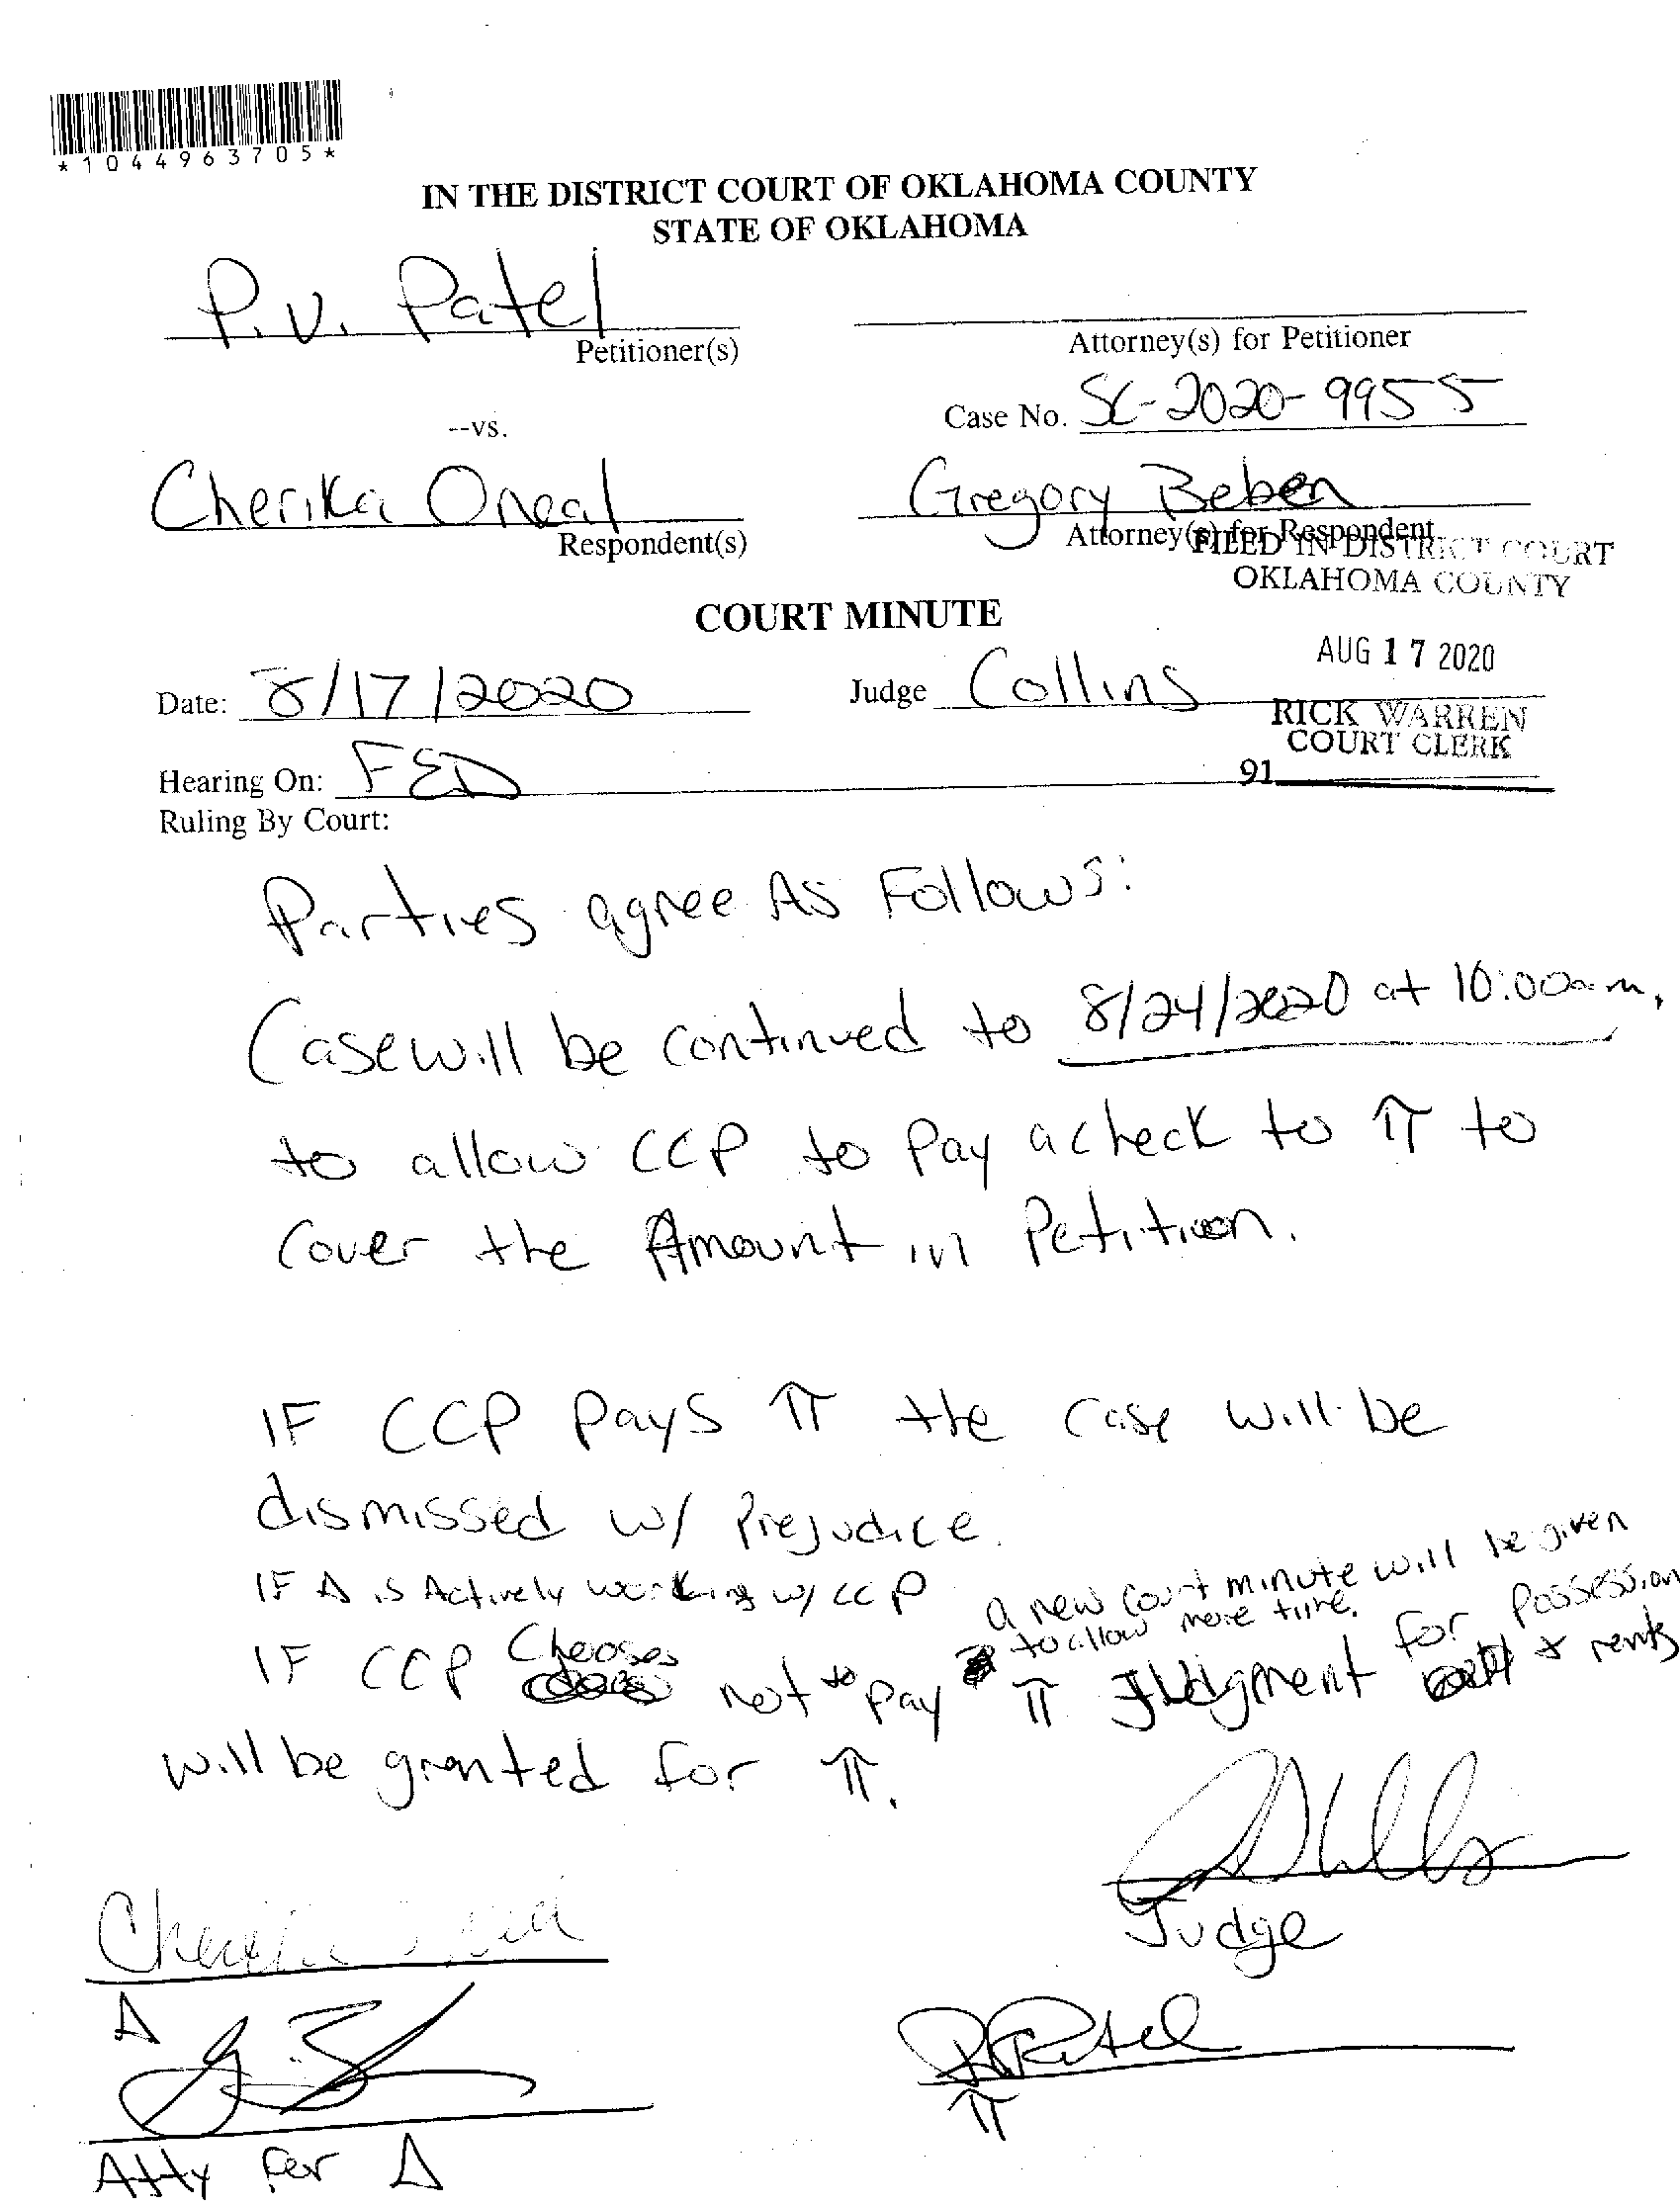 *1044963705*
IN THE DISTRICT COURT OF OKLAHOMA COUNTY
STATE OF OKLAHOMA
P.V. Patel
Petitioner(s)
Attorney(s) for Petitioner
Case No. SC-2020-9955
--vs.
Cherika Oneal
Respondent(s)
Gregory Beben
Attorney(s) for Respondent
FILED IN DISTRICT COURT
OKLAHOMA COUNTY
COURT MINUTE
AUG 17 2020
Date: 8/17/2020
Judge Collins
RICK WARREN
COURT CLERK
Hearing On: FED
91
Ruling By Court:
Parties agree As Follows:
Case will be continued to 8/24/2020 at 10:00am,
to allow CCP to Pay a check to π to
Cover the Amount in Petition.
IF CCP Pays π the case will be
dismissed w/ Prejudice.
IF Δ is Actively working w/ CCP a new court minute will be given
to allow more time.
IF CCP Chooses not to pay π Judgment for Possession
& rents
will be granted for π.
Judge
Δ
PPatel
π
Atty for Δ